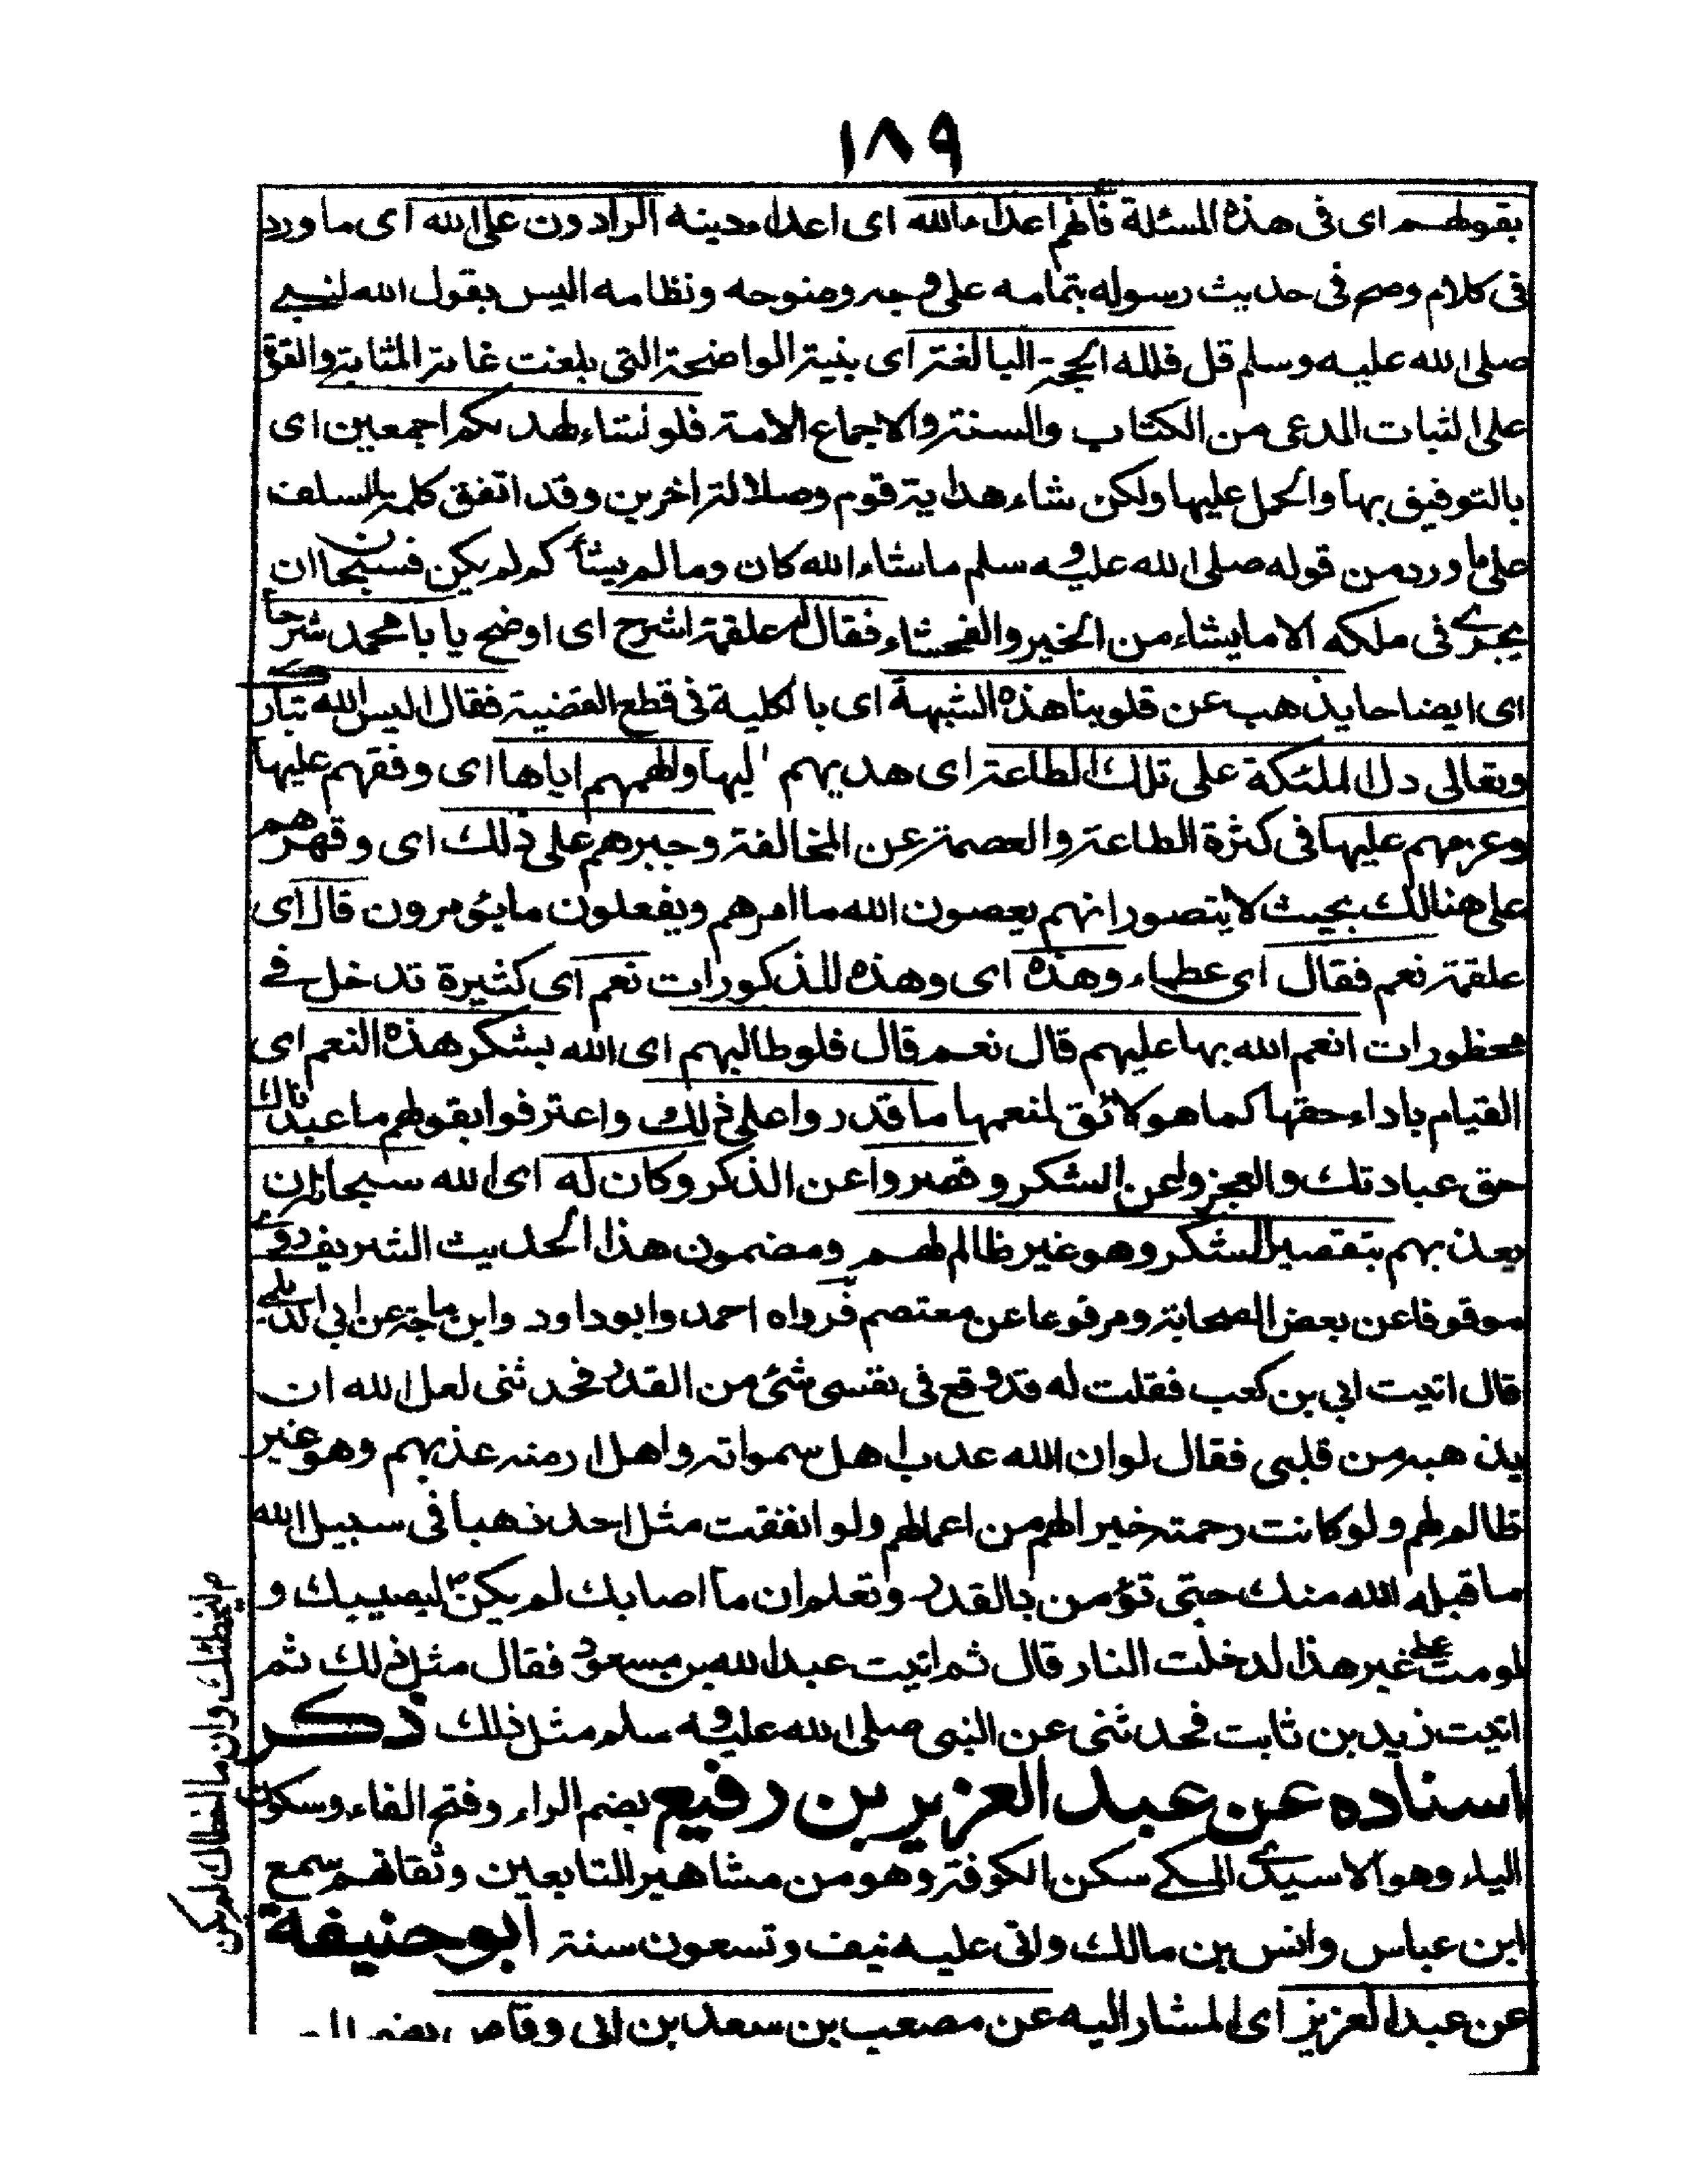 ١٨٩
بقولهم اى فى هذه المسئلة فانهم اعداء الله اى اعداء دينه الرادون على الله اى ما ورد
فى كلام وصح فى حديث رسوله بتمامه على وجه ومنوحه ونظامه اليس بقول الله لنبيے
صلى الله عليه وسلم قل فلله الحجة البالغة اى بنية الواضحة التى بلغت غاية المثابة والقوة
على اثبات المدعى من الكتاب والسنة والاجماع الامة فلو شاء لهدىكم اجمعين اى
بالتوفيق بها والحمل عليها ولكن شاء هداية قوم وضلالة اخرين وقد اتفق كلمة السلف
على ما ورد من قوله صلى الله عليه وسلم ماشاء الله كان وما لم يشأ كم لم يكن فسبحان ان
يجرے فى ملكه الا مايشاء من الخير والفحشاء فقال له علقمة اشرح اى اوضح يا با محمد شرحا
اى ايضاحا يذهب عن قلوبنا هذه الشبهة اى بالكلية فى قطع القضية فقال اليس الله تبارك
وتعالى دل الملئكة على تلك الطاعة اى هديهم اليها والهمهم اياها اى وفقهم عليها
وعزمهم عليها فى كثرة الطاعة والعصمة عن المخالفة وجبرهم على ذلك اى وقهرهم
على هنالك بحيث لا يتصور انهم يعصون الله ما امرهم ويفعلون مايئومرون قال اى
علقمة نعم فقال اى عطاء وهذه اى وهذه للذكورات نعم اى كثيرة تدخل فے
محظورات انعم الله بها عليهم قال نعم قال فلو طالبهم اى الله بشكر هذه النعم اى
القيام باداء حقها كما هو لائق لمنعمها ما قدروا على ذلك واعترفوا بقولهم ما عبدناك
حق عبادتك والعجزوا عن الشكر وقصروا عن الذكر وكان له اى الله سبحانه ان
يعذبهم بتقصير الشكر وهو غير ظالم لهم ومضمون هذا الحديث الشريف روے
موقوفا عن بعض الصحابة ومرفوعا عن معتصم فرواه احمد وابو داود وابن ماجة عن ابي الديلمے
قال اتيت ابي بن كعب فقلت له قد وقع فى نفسى شئ من القدر فحدثنى لعل الله ان
يذهبه من قلبى فقال لو ان الله عذب اهل سمواته واهل ارضه عذبهم وهو غير
ظالم لهم ولو كانت رحمته خيرا لهم من اعمالهم ولو انفقت مثل احد ذهبا فى سبيل الله
ما قبله الله منك حتى تؤمن بالقدر وتعلم ان ما اصابك لم يكن ليصيبك و
لو مت على غير هذا لدخلت النار قال ثم اتيت عبد الله بن مسعود فقال مثل ذلك ثم
اتيت زيد بن ثابت فحدثنى عن النبى صلى الله عليه وسلم مثل ذلك ذكر
اسناده عن عبد العزيز بن رفيع بضم الراء وفتح الفاء وسكون
الياء وهو الاسيدے المكے سكن الكوفة وهو من مشاهير التابعين وثقاتهم سمع
ابن عباس وانس بن مالك واتى عليه نيف وتسعون سنة ابو حنيفة
عن عبد العزيز اى المشار اليه عن مصعب بن سعد بن ابى وقاص بضم
م ليخطئك وان ما اخطاك لم يكن